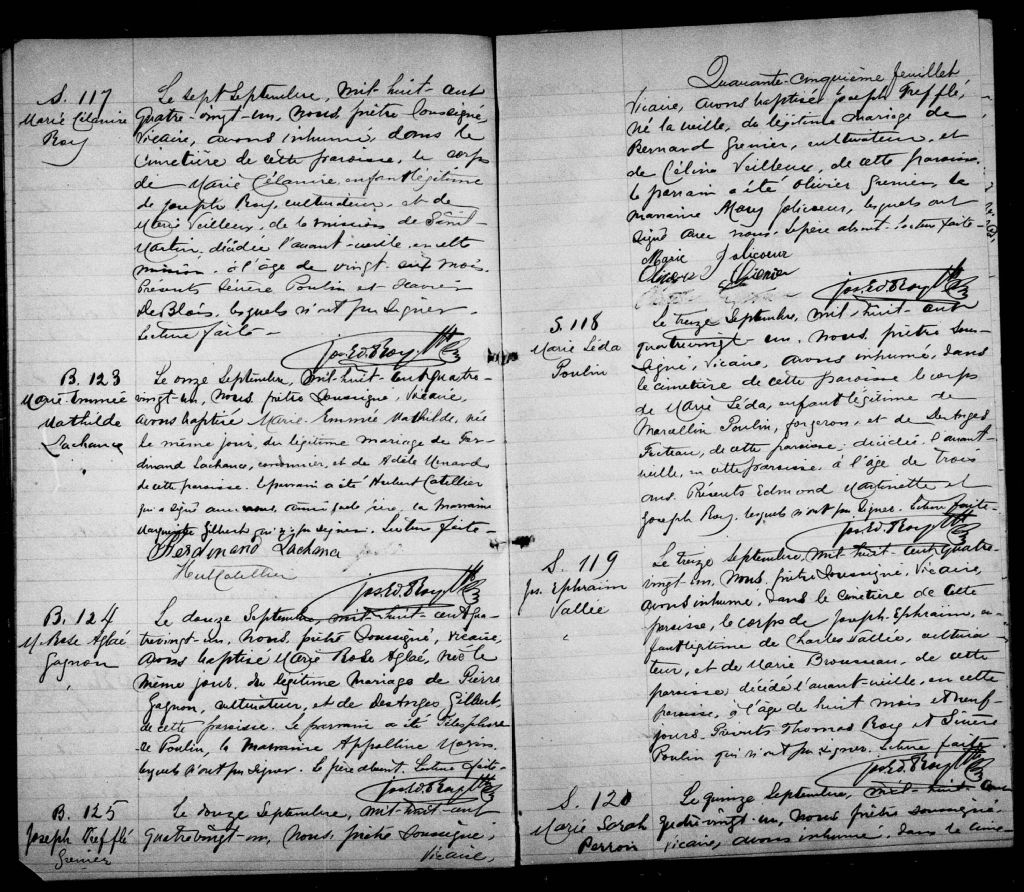 S. 117
Marie Célanire
Roy
Le sept Septembre, mil-huit-cent
quatre-vingt-un, nous prêtre soussigné,
Vicaire, avons inhumé, dans le
cimetière de cette paroisse, le corps
de Marie Célanire, enfant légitime
de Joseph Roy, cultivateur, et de
Marie Veilleux, de la mission de Saint-
Martin, décédée l'avant-veille, en cette
mission, à l'âge de vingt-six mois.
Présents Sévère Poulin et Xavier
DeBlois, lesquels n'ont pu signer.
Lecture faite -
Jos. Ed. Roy Ptre
B. 123
Marie-Emmée
Mathilde
Lachance
Le onze Septembre, mil-huit-cent quatre-
vingt-un, nous prêtre soussigné, Vicaire,
avons baptisé Marie-Emmée Mathilde, née
le même jour, du légitime mariage de Fer-
dinand Lachance, cordonnier, et de Adèle
de cette paroisse. Le parrain a été Hubert Catellier
qui a signé avec nous, ainsi que le père, la marraine
Marguerite Gilbert qui n'a pu signer. Lecture faite -
Ferdinand Lachance
Hu Catellier
Jos. Ed. Roy Ptre
B. 124
M. Rose Aglaé
Gagnon
Le douze Septembre, mil-huit-cent qua-
trevingt-un, nous, prêtre soussigné, Vicaire,
avons baptisé Marie Rose Aglaé, née le
même jour, du légitime mariage de Pierre
Gagnon, cultivateur, et de Desanges Gilbert,
de cette paroisse. Le parrain a été Télesphore
Poulin, la marraine Appolline Morin
lesquels n'ont pu signer. Le père absent. Lecture faite -
Jos. Ed. Roy Ptre
B. 125
Joseph Treffle
Grenier
Le douze Septembre, mil-huit-cent
quatrevingt-un, nous prêtre soussigné,
Vicaire,
Quarante-cinquième feuillet.
Vicaire, avons baptisé Joseph Treffle,
né la veille, de légitime mariage de
Bernard Grenier, cultivateur, et
de Céline Veilleux, de cette paroisse.
Le parrain a été Olivier Grenier, la
marraine Mary Jolicoeur, lesquels ont
signé avec nous. Le père absent. Lecture faite -
Marie Jolicoeur
Jos. Ed. Roy Ptre
S. 118
Marie Léda
Poulin
Le treize Septembre, mil-huit-cent
quatrevingt-un, nous, prêtre sous-
signé, Vicaire, avons inhumé, dans
le cimetière de cette paroisse le corps
de Marie Léda, enfant légitime de
Marcellin Poulin, forgeron, et de Desanges
de cette paroisse, décédée l'avant-
veille, en cette paroisse, à l'âge de trois
ans. Présents Edmond et
Joseph Roy, lesquels n'ont pu signer. Lecture faite -
Jos. Ed. Roy Ptre
S. 119
Js. Ephraim
Vallée
Le treize Septembre, mil-huit-cent quatre-
vingt-un, nous prêtre soussigné, Vicaire,
avons inhumé, dans le cimetière de cette
paroisse, le corps de Joseph-Ephraim, en-
fant légitime de Charles Vallée, cultiva-
teur, et de Marie Brousseau, de cette
paroisse, décédé l'avant-veille, en cette
paroisse, à l'âge de huit mois et neuf
jours. Présents Thomas Roy et Sévère
Poulin qui n'ont pu signer. Lecture faite
Jos. Ed. Roy Ptre
S. 120
Marie Sarah
Perron
Le quinze Septembre, mil-huit-cent
quatre-vingt-un, nous prêtre soussigné
Vicaire, avons inhumé, dans le cime-